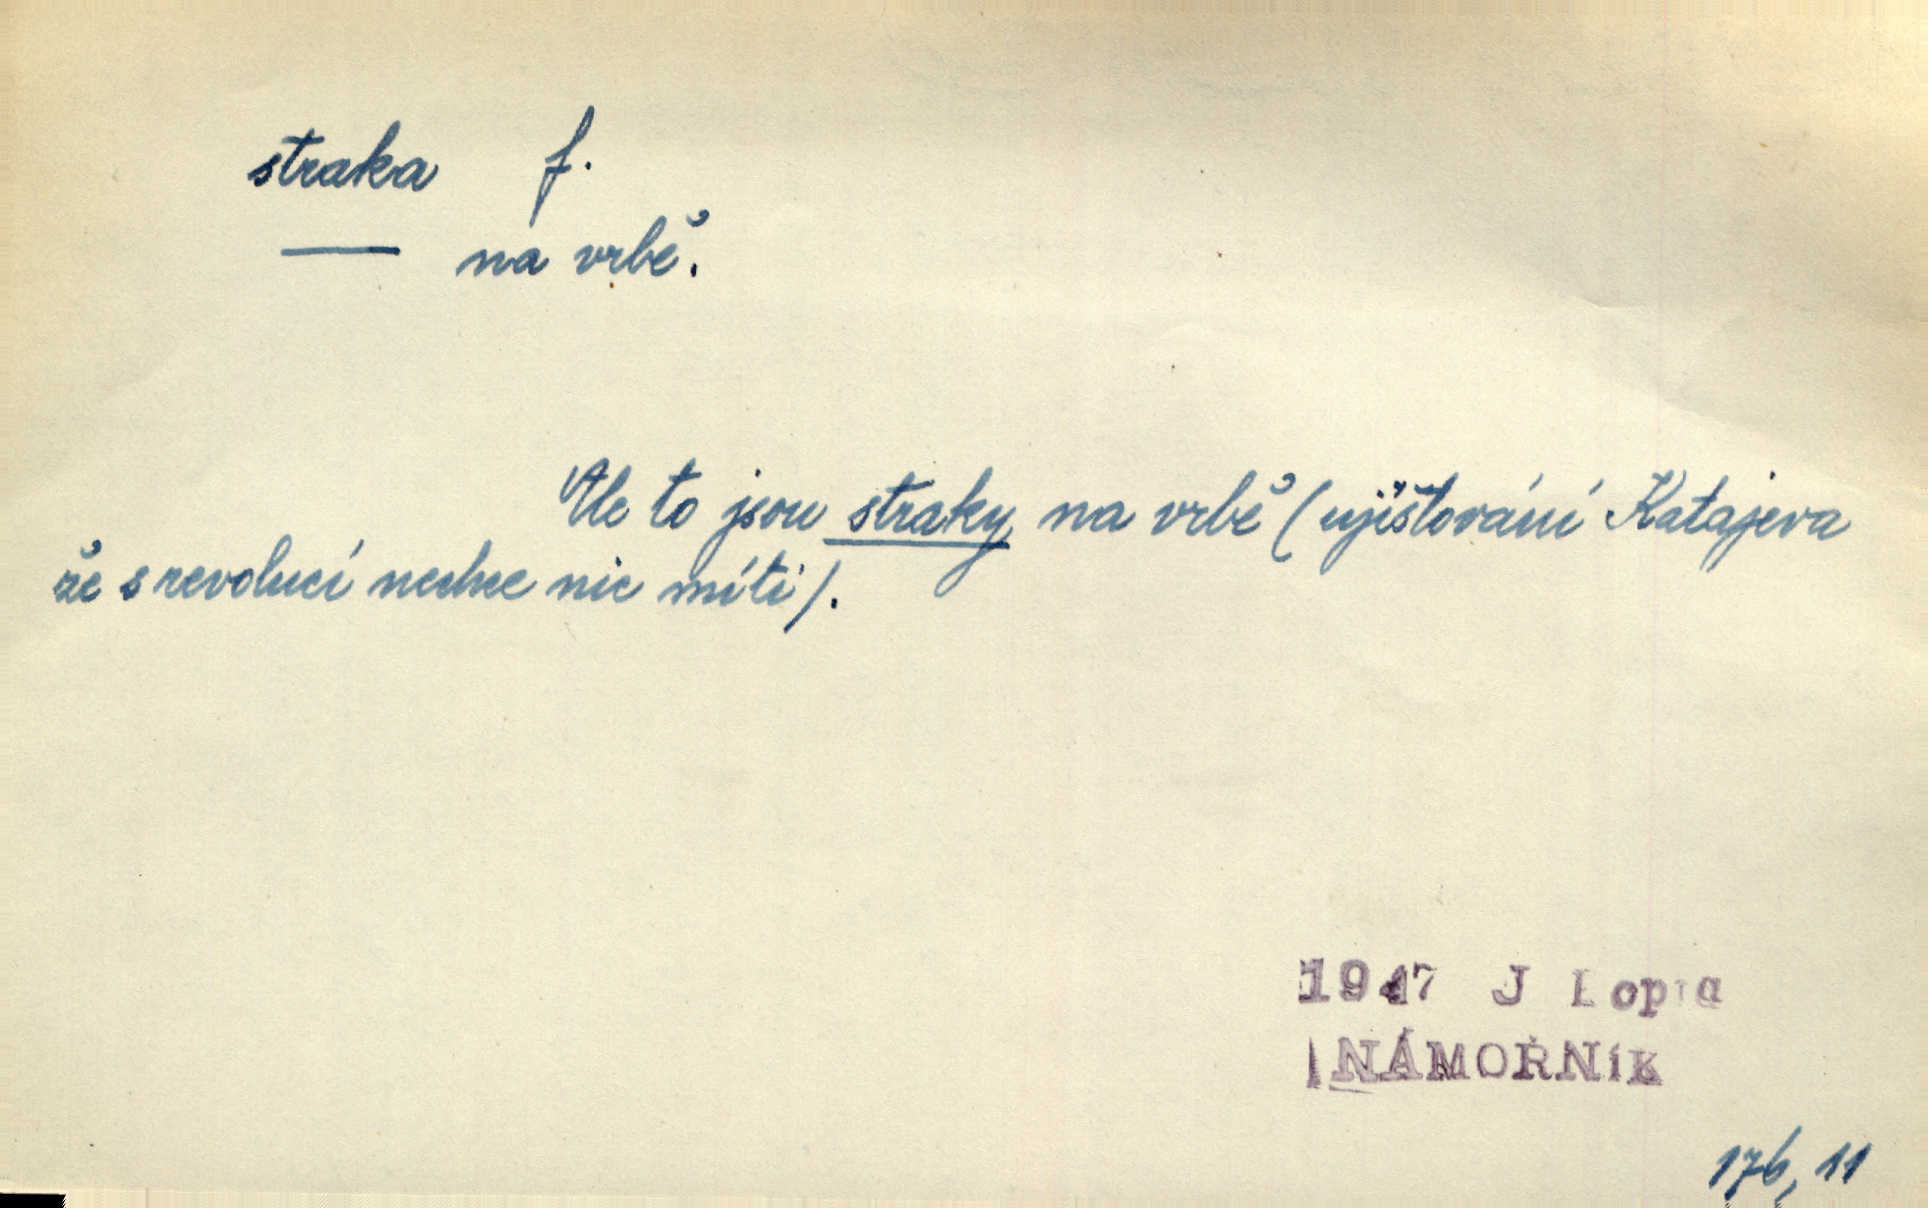 straka f.
— na vrbě.
Ale to jsou straky na vrbě (ujišťování Katajeva
že s revolucí nechce nic míti).
1947 J
NÁMOŘNÍK
176, 11